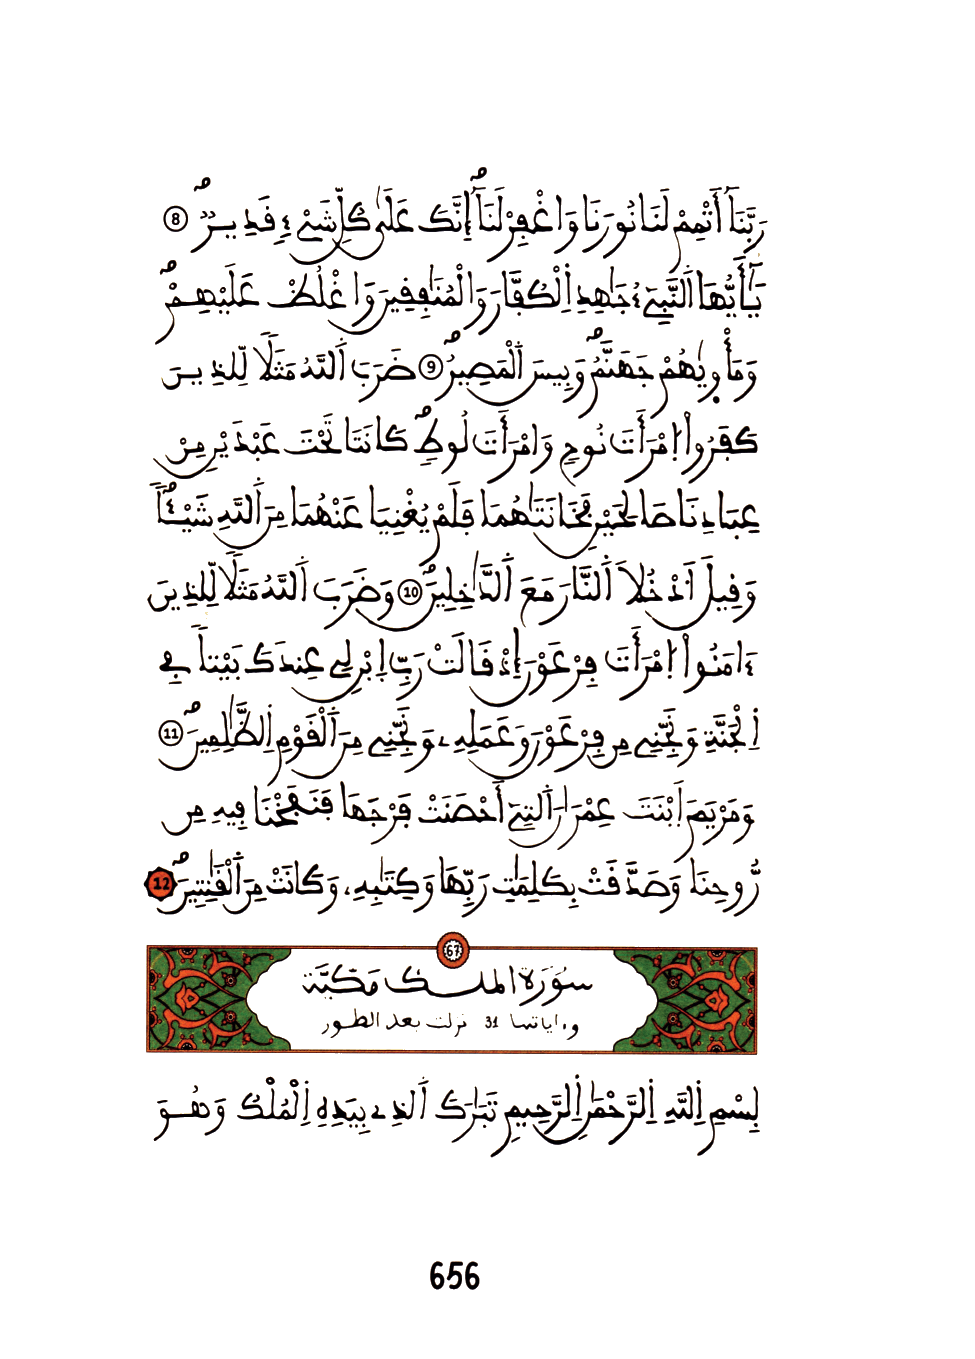 رَبَّنَآ أَتْمِمْ لَنَا نُورَنَا وَاغْفِرْ لَنَآۖ إِنَّكَ عَلَىٰ كُلِّ شَےْءٖ قَدِيرٞۖ 8
يَٰٓأَيُّهَا اَلنَّبِےٓءُ جَٰهِدِ اِلْكُفَّارَ وَالْمُنَٰفِقِينَ وَاغْلُظْ عَلَيْهِمْۖ
وَمَأْوۭيٰهُمْ جَهَنَّمُۖ وَبِيسَ اَلْمَصِيرُۖ 9 ضَرَبَ اَللَّهُ مَثَلٗا لِّلذِينَ
كَفَرُواْ اُ۪مْرَأَتَ نُوحٖ وَامْرَأَتَ لُوطٖۖ كَانَتَا تَحْتَ عَبْدَيْنِ مِنْ
عِبَادِنَا صَٰلِحَيْنِ فَخَانَتَٰهُمَا فَلَمْ يُغْنِيَا عَنْهُمَا مِنَ اَللَّهِ شَيْـٔٗاۖ
وَقِيلَ اَدْخُلَا اَلنَّارَ مَعَ اَلدَّٰخِلِينَۖ 10 وَضَرَبَ اَللَّهُ مَثَلٗا لِّلذِينَ
ءَامَنُواْ اُ۪مْرَأَتَ فِرْعَوْنَ إِذْ قَالَتْ رَبِّ اِبْنِ لِے عِندَكَ بَيْتاٗ فِے
اِلْجَنَّةِ وَنَجِّنِے مِن فِرْعَوْنَ وَعَمَلِهِۦ وَنَجِّنِے مِنَ اَلْقَوْمِ اِلظَّٰلِمِينَۖ 11
وَمَرْيَمَ اَبْنَتَ عِمْرَٰنَ اَلتِےٓ أَحْصَنَتْ فَرْجَهَا فَنَفَخْنَا فِيهِ مِن
رُّوحِنَا وَصَدَّقَتْ بِكَلِمَٰتِ رَبِّهَا وَكِتَٰبِهِۦ وَكَانَتْ مِنَ اَلْقَٰنِتِينَۖ 12
67
سُورَةُ الملك مَكِّيَّة
وءاياتها 31 نزلت بعد الطور
بِسْمِ اِللَّهِ اِلرَّحْمَٰنِ اِلرَّحِيمِ تَبَٰرَكَ اَلذِے بِيَدِهِ اِلْمُلْكُ وَهُوَ
656